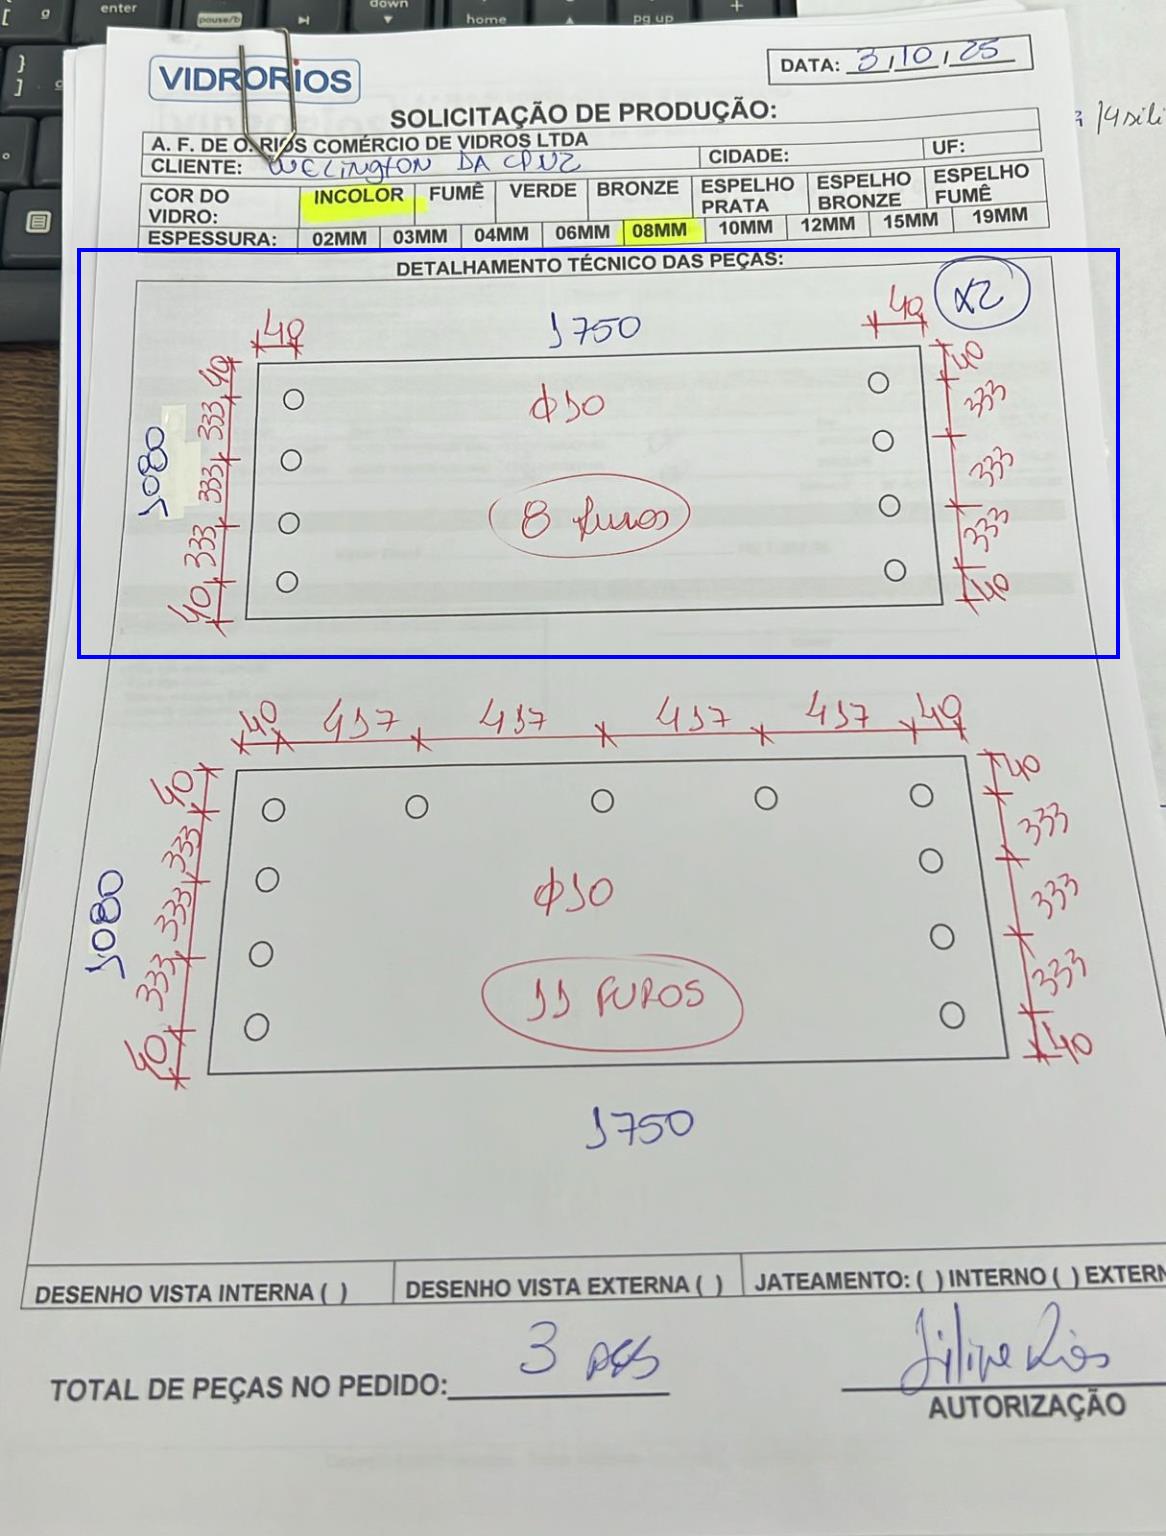 enter
pause/b
down
home
pg up
VIDRORIOS
DATA: 3/10/25
SOLICITAÇÃO DE PRODUÇÃO:
A. F. DE O. RIOS COMÉRCIO DE VIDROS LTDA
CLIENTE: WELINGTON DA CRUZ CIDADE: UF:
COR DO VIDRO: INCOLOR FUMÊ VERDE BRONZE ESPELHO PRATA ESPELHO BRONZE ESPELHO FUMÊ
ESPESSURA: 02MM 03MM 04MM 06MM 08MM 10MM 12MM 15MM 19MM
DETALHAMENTO TÉCNICO DAS PEÇAS:
X2
40 1750 40
40 333 333 333 40
1080
ϕ10
8 furos
40 333 333 333 40
40 437 437 437 437 40
40 333 333 333 40
1080
ϕ10
11 FUROS
40 333 333 333 40
1750
DESENHO VISTA INTERNA ( ) DESENHO VISTA EXTERNA ( ) JATEAMENTO: ( ) INTERNO ( ) EXTERN
TOTAL DE PEÇAS NO PEDIDO: 3 pçs
Filipe Rios
AUTORIZAÇÃO